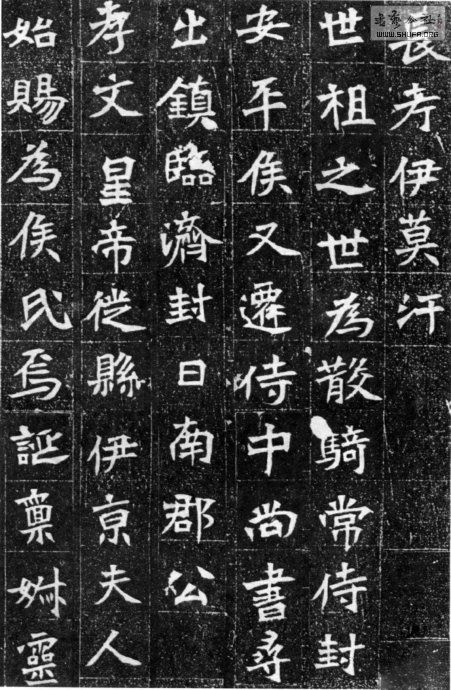 長考伊莫汗
世祖之世為散騎常侍封
安平侯又遷侍中尚書尋
出鎮臨濟封日南郡公
孝文皇帝徙縣伊京夫人
始賜為侯氏焉誕稟靈
WWW.SHUFA.ORG